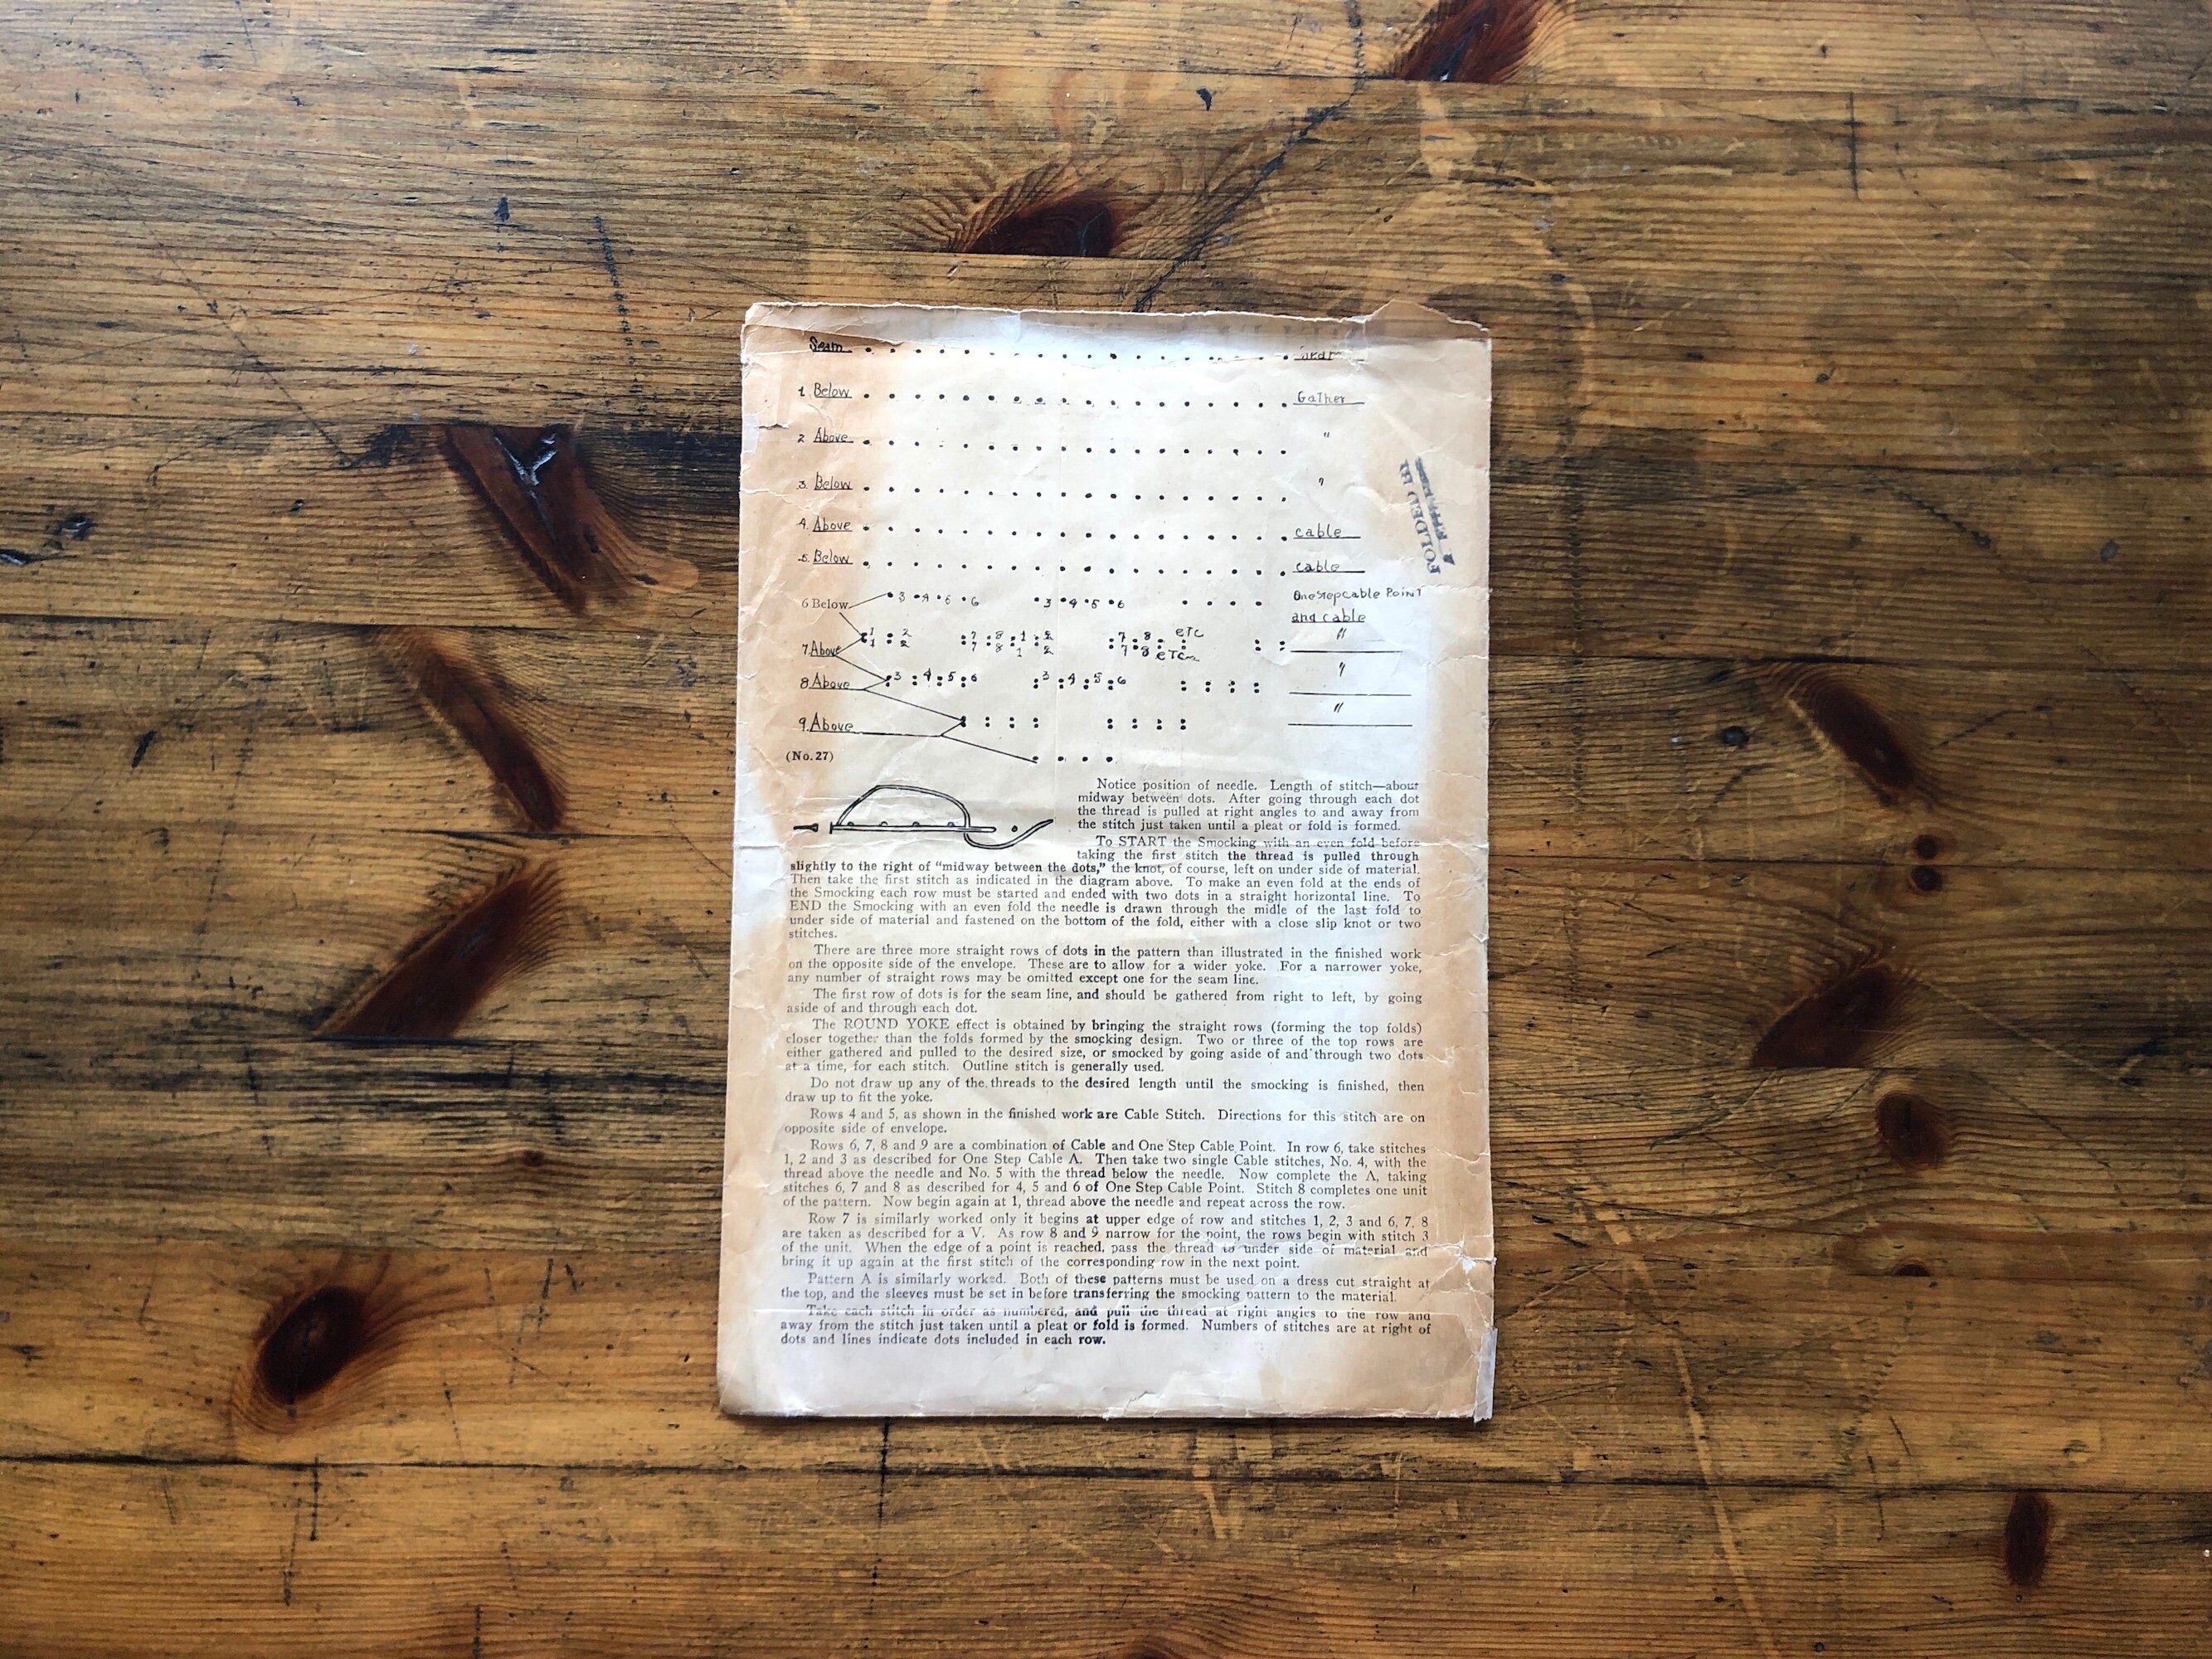 Seam
1 Below Gather
2 Above "
3. Below "
4. Above cable
5. Below cable
6 Below 3 4 5 6 3 4 5 6 One step cable Point
and cable
1 2 7 8 1 2 7 8 eTc "
7 Above 1 2 7 8 1 2 7 8 eTc
8 Above 3 4 5 6 3 4 5 6 "
9 Above "
(No. 27)
FOLDED
Notice position of needle. Length of stitch—about
midway between dots. After going through each dot
the thread is pulled at right angles to and away from
the stitch just taken until a pleat or fold is formed.
To START the Smocking with an even fold before
taking the first stitch the thread is pulled through
slightly to the right of "midway between the dots," the knot, of course, left on under side of material.
Then take the first stitch as indicated in the diagram above. To make an even fold at the ends of
the Smocking each row must be started and ended with two dots in a straight horizontal line. To
END the Smocking with an even fold the needle is drawn through the midle of the last fold to
under side of material and fastened on the bottom of the fold, either with a close slip knot or two
stitches.
There are three more straight rows of dots in the pattern than illustrated in the finished work
on the opposite side of the envelope. These are to allow for a wider yoke. For a narrower yoke,
any number of straight rows may be omitted except one for the seam line.
The first row of dots is for the seam line, and should be gathered from right to left, by going
aside of and through each dot.
The ROUND YOKE effect is obtained by bringing the straight rows (forming the top folds)
closer together than the folds formed by the smocking design. Two or three of the top rows are
either gathered and pulled to the desired size, or smocked by going aside of and through two dots
at a time, for each stitch. Outline stitch is generally used.
Do not draw up any of the threads to the desired length until the smocking is finished, then
draw up to fit the yoke.
Rows 4 and 5, as shown in the finished work are Cable Stitch. Directions for this stitch are on
opposite side of envelope.
Rows 6, 7, 8 and 9 are a combination of Cable and One Step Cable Point. In row 6, take stitches
1, 2 and 3 as described for One Step Cable Λ. Then take two single Cable stitches, No. 4, with the
thread above the needle and No. 5 with the thread below the needle. Now complete the Λ, taking
stitches 6, 7 and 8 as described for 4, 5 and 6 of One Step Cable Point. Stitch 8 completes one unit
of the pattern. Now begin again at 1, thread above the needle and repeat across the row.
Row 7 is similarly worked only it begins at upper edge of row and stitches 1, 2, 3 and 6, 7, 8
are taken as described for a V. As row 8 and 9 narrow for the point, the rows begin with stitch 3
of the unit. When the edge of a point is reached, pass the thread to under side of material and
bring it up again at the first stitch of the corresponding row in the next point.
Pattern A is similarly worked. Both of these patterns must be used on a dress cut straight at
the top, and the sleeves must be set in before transferring the smocking pattern to the material.
Take each stitch in order as numbered, and pull the thread at right angles to the row and
away from the stitch just taken until a pleat or fold is formed. Numbers of stitches are at right of
dots and lines indicate dots included in each row.